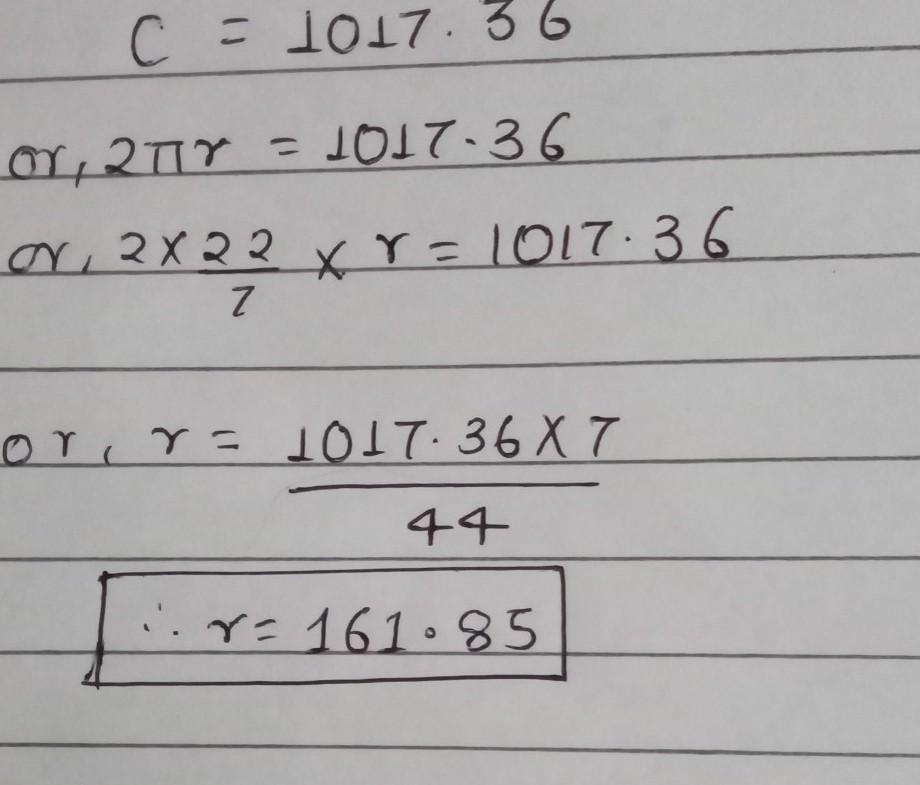 C = 1017.36
or, 2πr = 1017.36
or, 2 × 22/7 × r = 1017.36
or, r = 1017.36 × 7
44
∴ r = 161.85